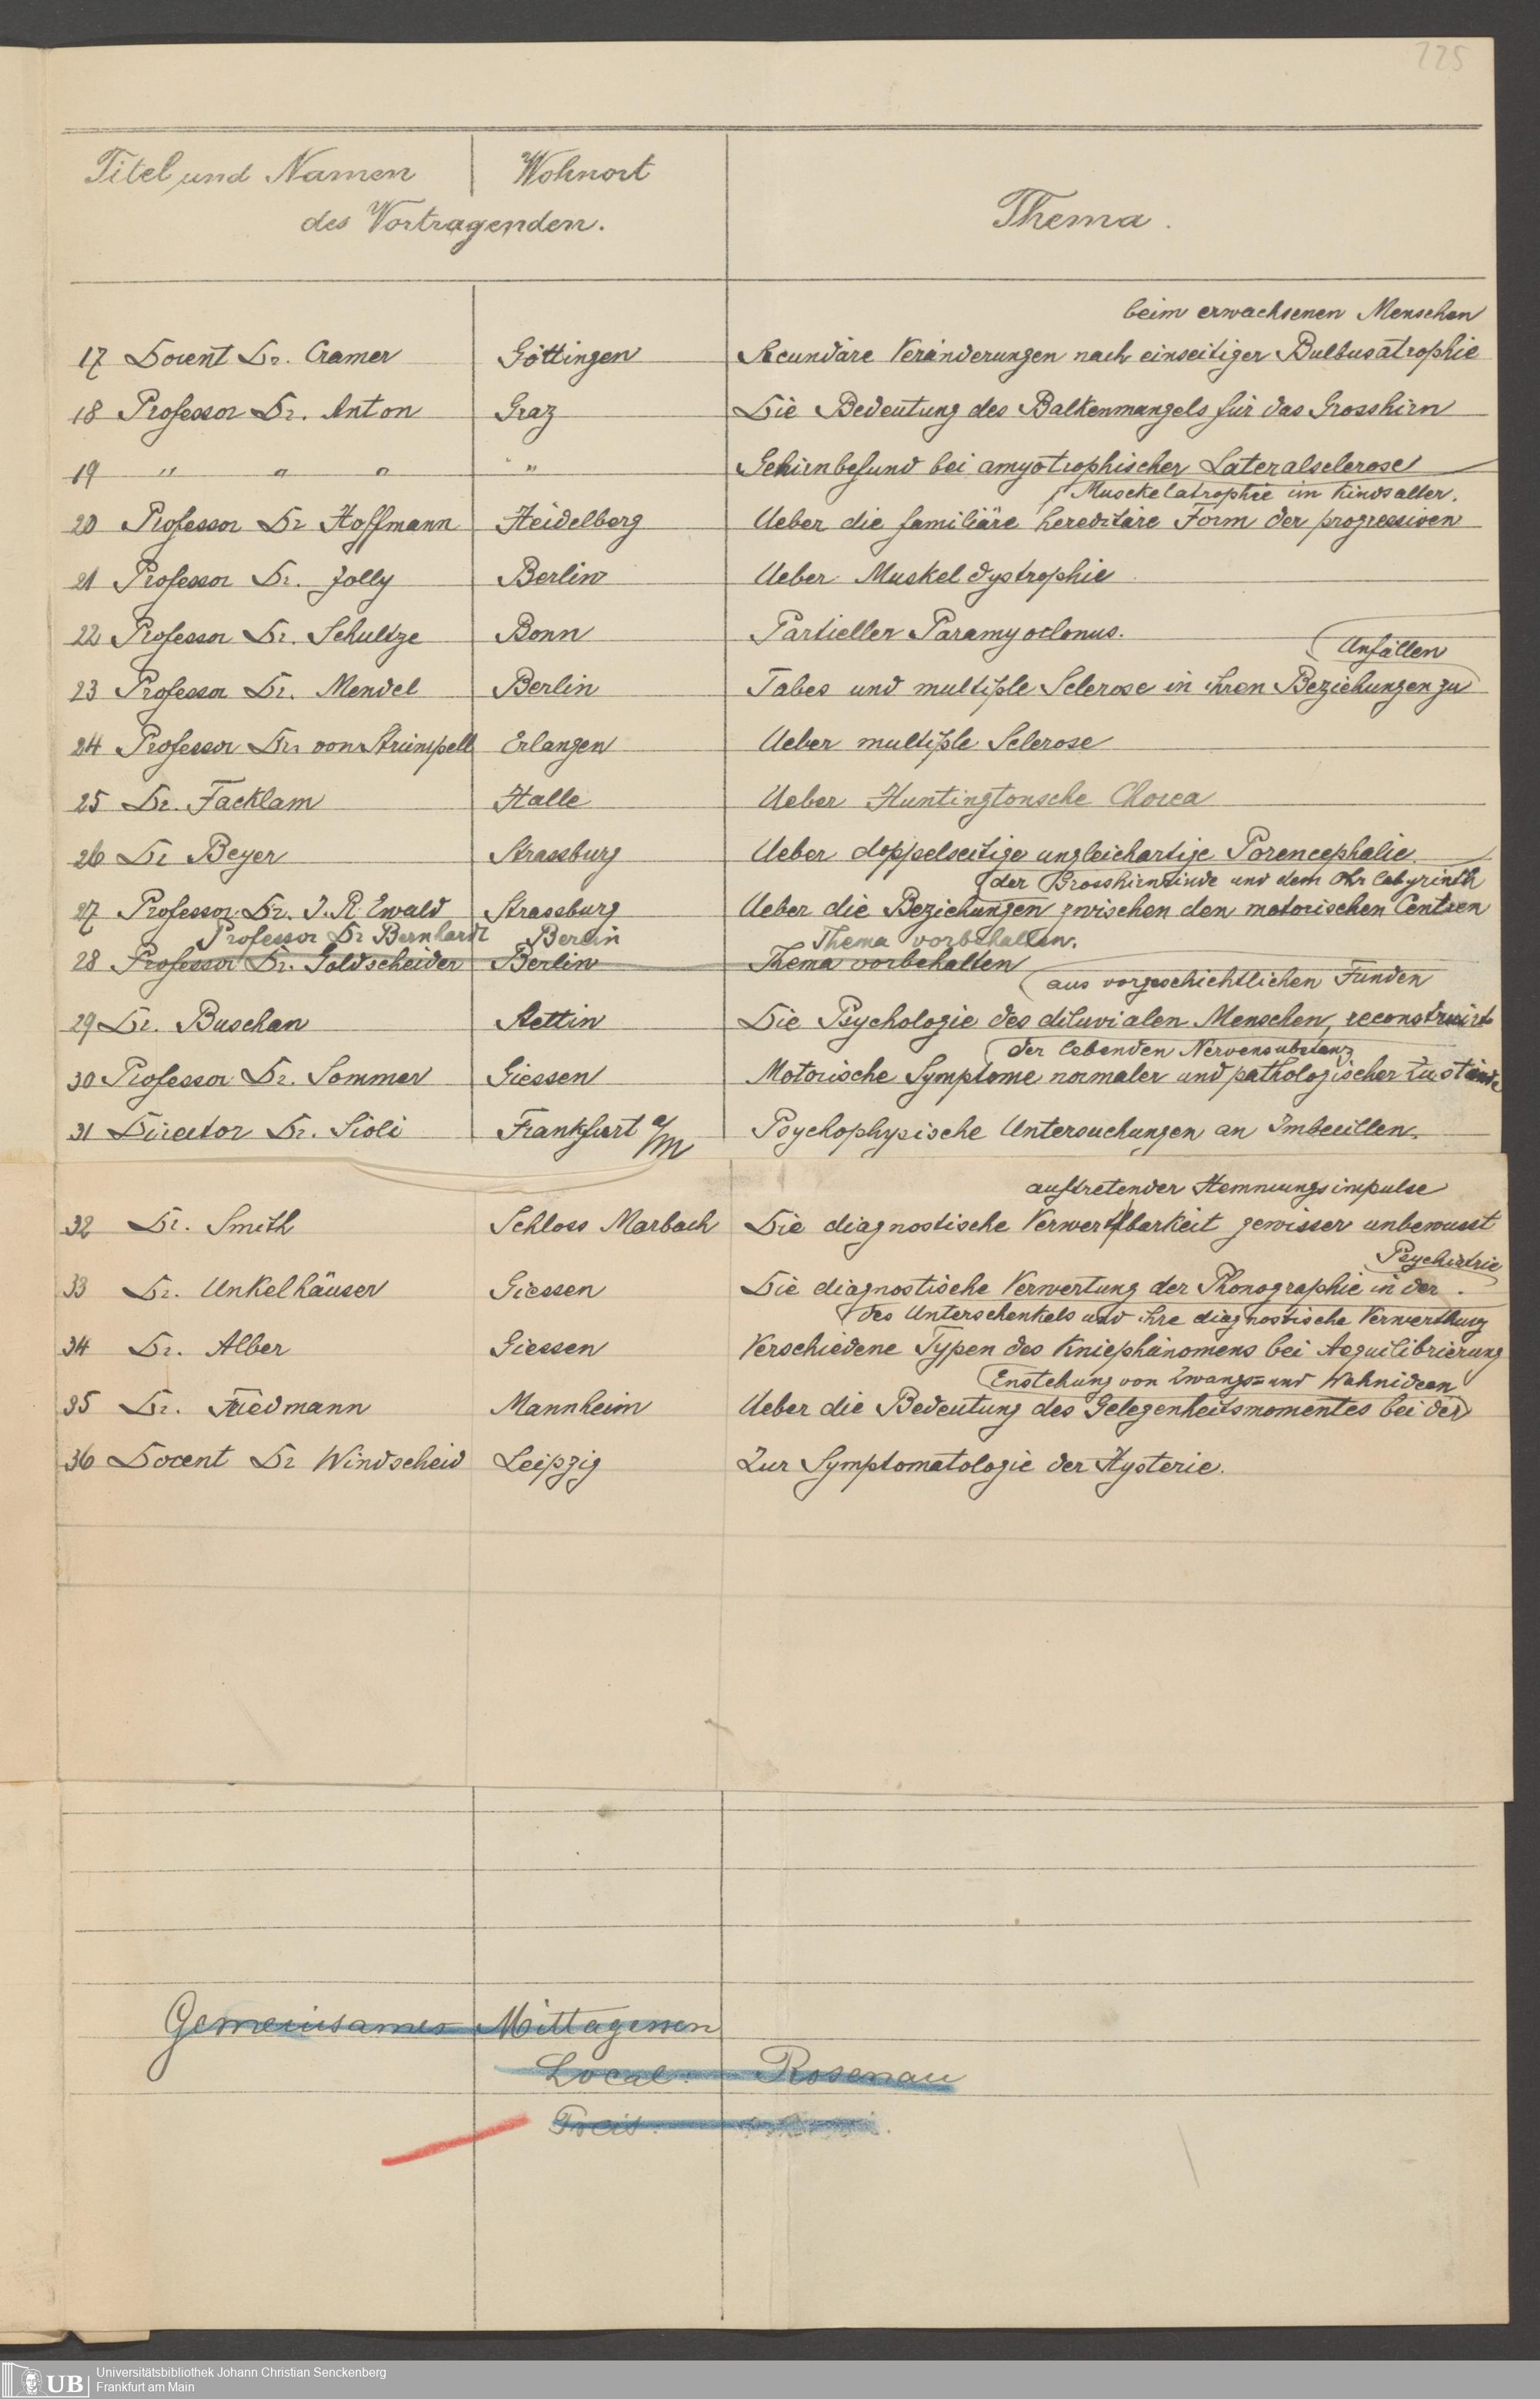 225
Titel und Namen Wohnort
des Vortragenden.
Thema.
beim erwachsenen Menschen
17 Docent Dr. Cramer Göttingen Secundäre Veränderungen nach einseitiger Bulbusatrophie
18 Professor Dr. Anton Graz Die Bedeutung des Balkenmangels für das Grosshirn
19 " " " " Gehirnbefund bei amyotrophischer Lateralsclerose
Musckelatrophie im Kindsalter.
20 Professor Dr Hoffmann Heidelberg Ueber die familiäre hereditäre Form der progressiven
21 Professor Dr. Jolly Berlin Ueber Muskeldystrophie
22 Professor Dr. Schultze Bonn Partieller Paramyoclonus.
Unfällen
23 Professor Dr. Mendel Berlin Tabes und multiple Sclerose in ihren Beziehungen zu
24 Professor Dr. von Strümpell Erlangen Ueber multiple Sclerose
25 Dr. Facklam Halle Ueber Huntingtonsche Chorea
26 Dr Beyer Strassburg Ueber doppelseitige ungleichartige Porencephalie
der Grosshirnrinde und dem Ohrlabyrinth
27 Professor Dr. J. R. Ewald Strassburg Ueber die Beziehungen zwischen den motorischen Centren
Professor Dr Bernhardt Berlin Thema vorbehalten.
28 Professor Dr. Goldscheider Berlin Thema vorbehalten
aus vorgeschichtlichen Funden
29 Dr. Buschan Stettin Die Psychologie des diluvialen Menschen, reconstruirt
der lebenden Nervensubstanz
30 Professor Dr. Sommer Giessen Motorische Symptome normaler und pathologischer Zustände
31 Director Dr. Sioli Frankfurt a/M Psychophysische Untersuchungen an Imbecillen.
auftretender Hemmungsimpulse
32 Dr. Smith Schloss Marbach Die diagnostische Verwerthbarkeit gewisser unbewusst
Psychiatrie
33 Dr. Unkelhäuser Giessen Die diagnostische Verwertung der Phonographie in der .
des Unterschenkels und ihre diagnostische Verwerthung
34 Dr. Alber Giessen Verschiedene Typen des Kniephänomens bei Aequilibrierung
Enstehung von Zwangs= und Wahnideen
35 Dr. Friedmann Mannheim Ueber die Bedeutung des Gelegenheitsmomentes bei der
36 Docent Dr Windscheid Leipzig Zur Symptomatologie der Hysterie.
Gemeinsames Mittagessen
Local: Rosenau
Preis:
UB Universitätsbibliothek Johann Christian Senckenberg
Frankfurt am Main